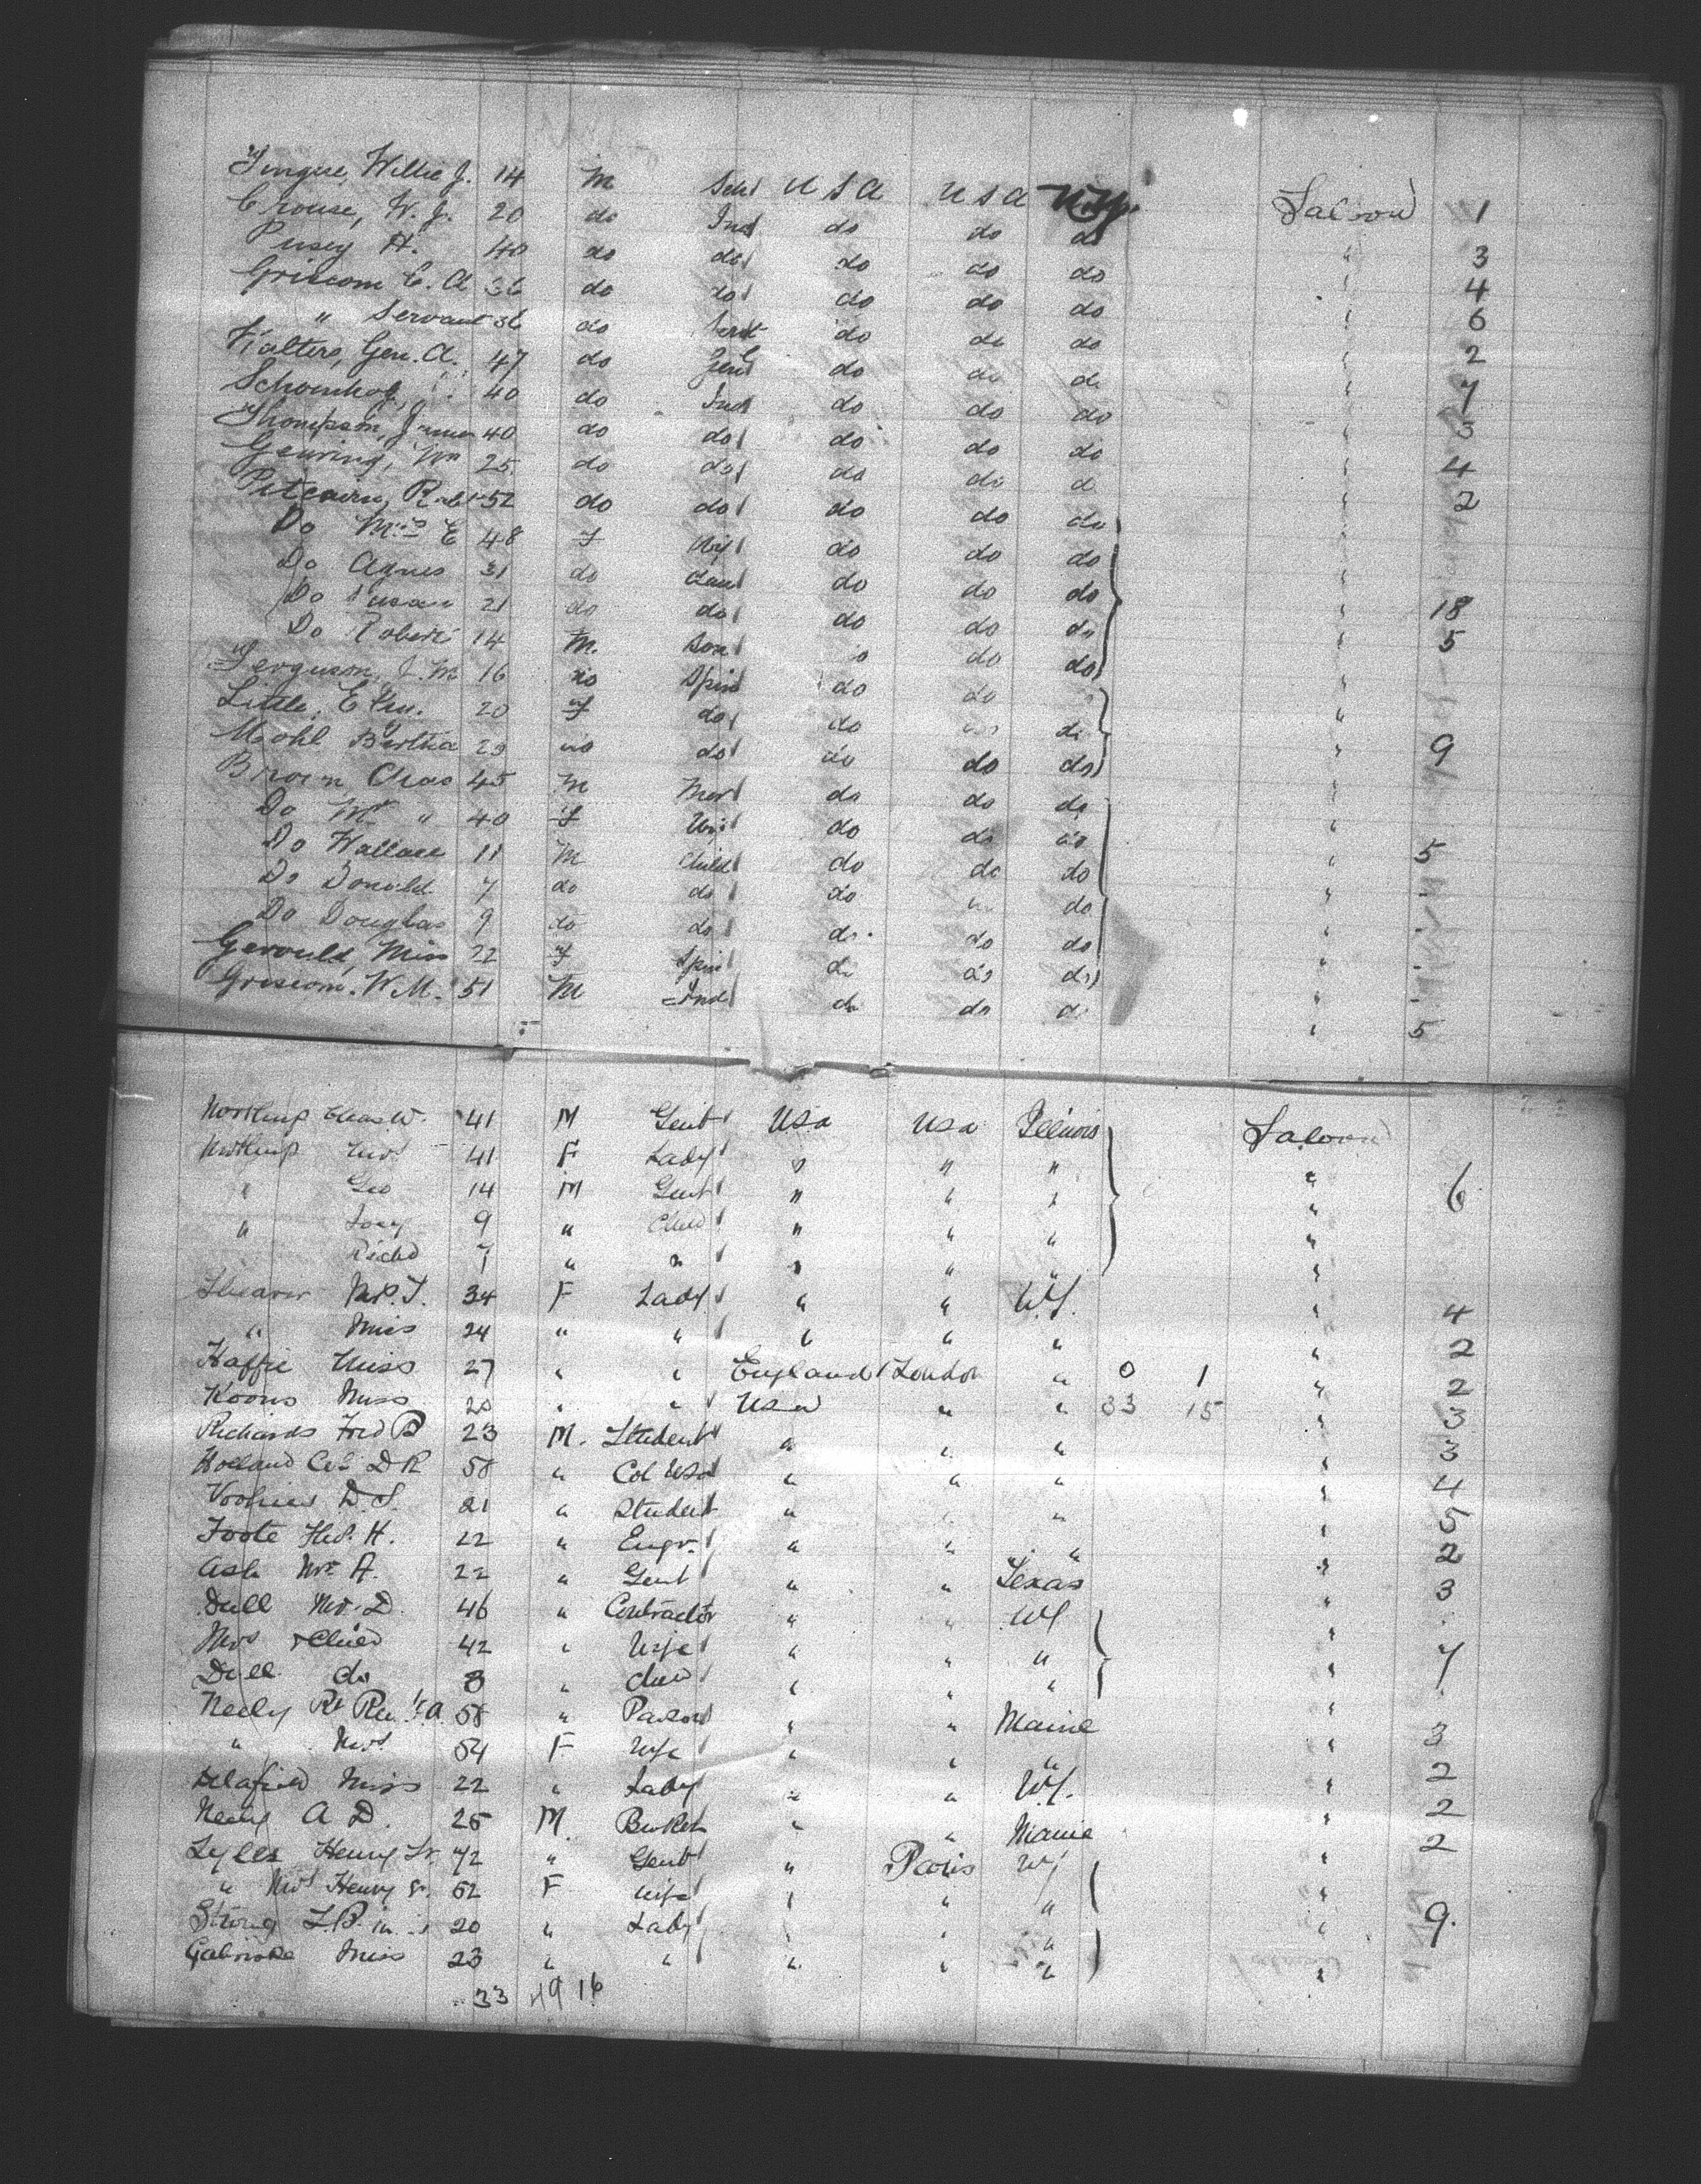 Willie J. 14 M Sch USA USA N.Y. Saloon 1
Crouse, W. J. 20 do Ind do do do " 3
Pusey H. 40 do do do do do " 4
Griscom C. A 36 do do do do do " 6
" Servant 36 do Servt do do do " 2
Walters, Gen. A. 47 do Gent do do do " 7
40 do Ind do do do " 3
Thompson, 40 do do do do do " 4
Gearing, Wm 25 do do do do do " 2
Pitcairn, Robt 52 do do do do do "
Do Mrs E 48 F Wif do do do "
Do Agnes 21 do Dau do do do "
Do Susan 21 do do do do do " 18
Do Robert 14 M. Son do do do " 5
Ferguson, J. M 16 do Spin do do "
Little, E 20 F do do do do "
Mohl Bertha 29 do do do do do " 9
Brown Chas 45 M Mer do do do "
Do Mrs " 40 F Wif do do do "
Do Wallace 11 M Child do do do " 5
Do Donald 7 do do do do " -
Do Douglas 9 do do do do do " -
Gerould, Miss 22 F Spin do do do " -
Griscom. W. M. 51 M Ind do do do " 5
Northup Chas W. 41 M Gent USA USA Illinois Saloon
Northup Mrs 41 F Lady " " " "
" Geo 14 M Gent " " " " 6
" 9 " Child " " " "
Richd 7 " " " " " "
Shearer Mrs. T. 34 F Lady " " NY. " 4
" Miss 24 " " " " " " 2
Miss 27 " " England London " 0 1 " 2
Koons Miss " " USA " " 33 15 " 3
Richards Fred B 23 M. Student " " " " 3
Holland Col D R 58 " Col USA " " " " 4
Voohies D. S. 21 " Student " " " " 5
Foote H. 22 " Engr. " " " " 2
Ash Mr. A. 22 " Gent " " Texas " 3
Dull Mr. D. 46 " Contractor " " NY "
Mrs & Child 42 " Wife " " " " 7
Dull do 8 " Child " " " "
Neely Rt Rev. A. 58 " Parson " " Maine " 3
" Mrs. 54 F Wife " " " " 2
Delafield Miss 22 " Lady " " NY. " 2
Neely A D. 25 M. Broker " " Maine " 2
Lyles Henry Sr. 72 " Gent " Paris NY "
" Mrs Henry Sr. 62 F Wife " " " "
Strong 20 " Lady " " " " 9.
Miss 23 " " " " " "
33 49 16